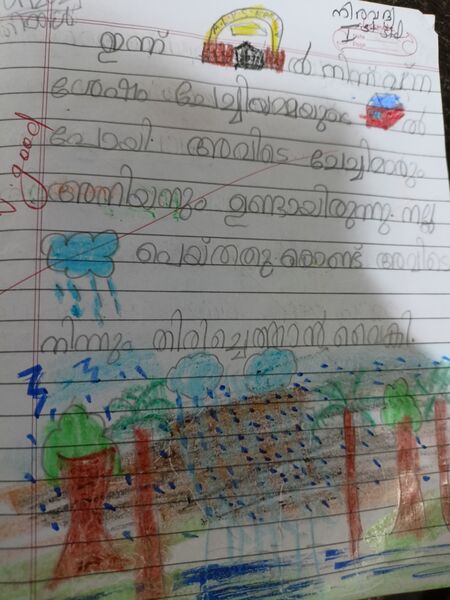 നിരവദ്യ
ഇന്ന് ൽ നിന്ന് വന്ന
ശേഷം ചേച്ചിയമ്മയുടെ ൽ
പോയി. അവിടെ ചേച്ചിമാരും
അനിയനും ഉണ്ടായിരുന്നു. നല്ല
പെയ്തതു കൊണ്ട് അവിടെ
നിന്നും തിരിച്ചെത്താൻ വൈകി.
good